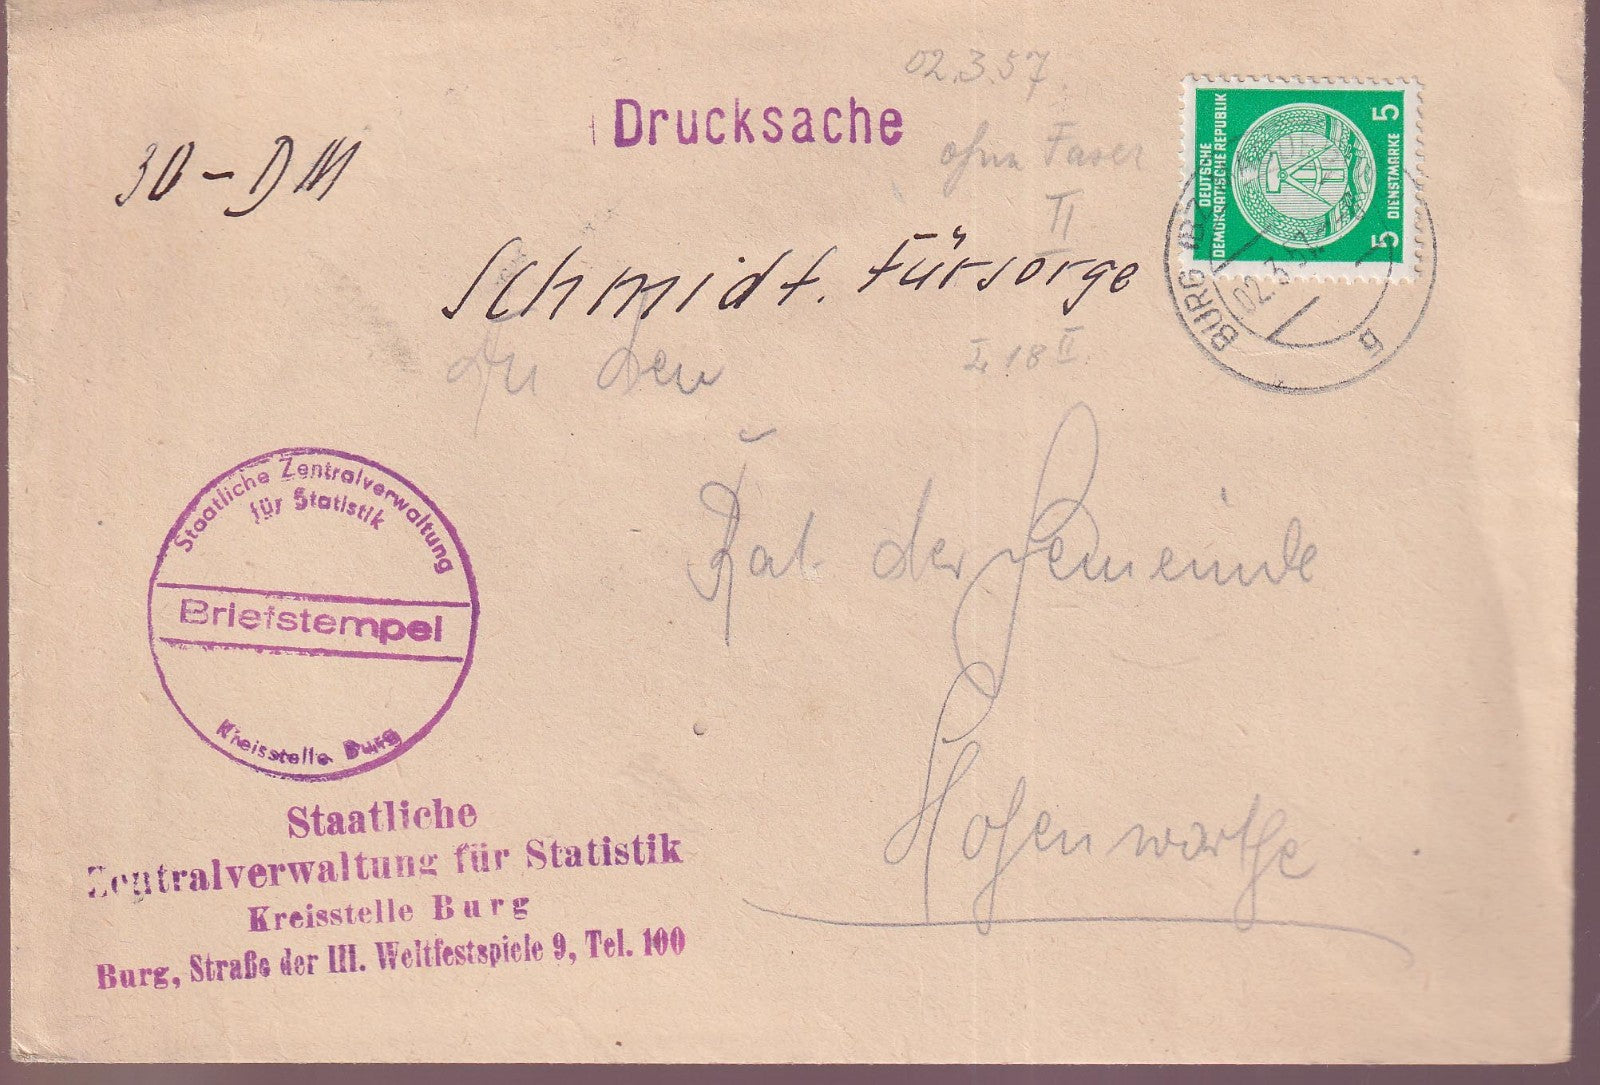 02.3.57.
Drucksache
ohne Faser
II
30-DM
Schmidt. Fürsorge
I 18 II
An den
Rat der Gemeinde
Hohenwarthe
DEUTSCHE
DEMOKRATISCHE REPUBLIK
5 DIENSTMARKE 5
BURG (BZ
02.3.57
g
Staatliche Zentralverwaltung
für Statistik
Briefstempel
Kreisstelle Burg
Staatliche
Zentralverwaltung für Statistik
Kreisstelle Burg
Burg, Straße der III. Weltfestspiele 9, Tel. 100